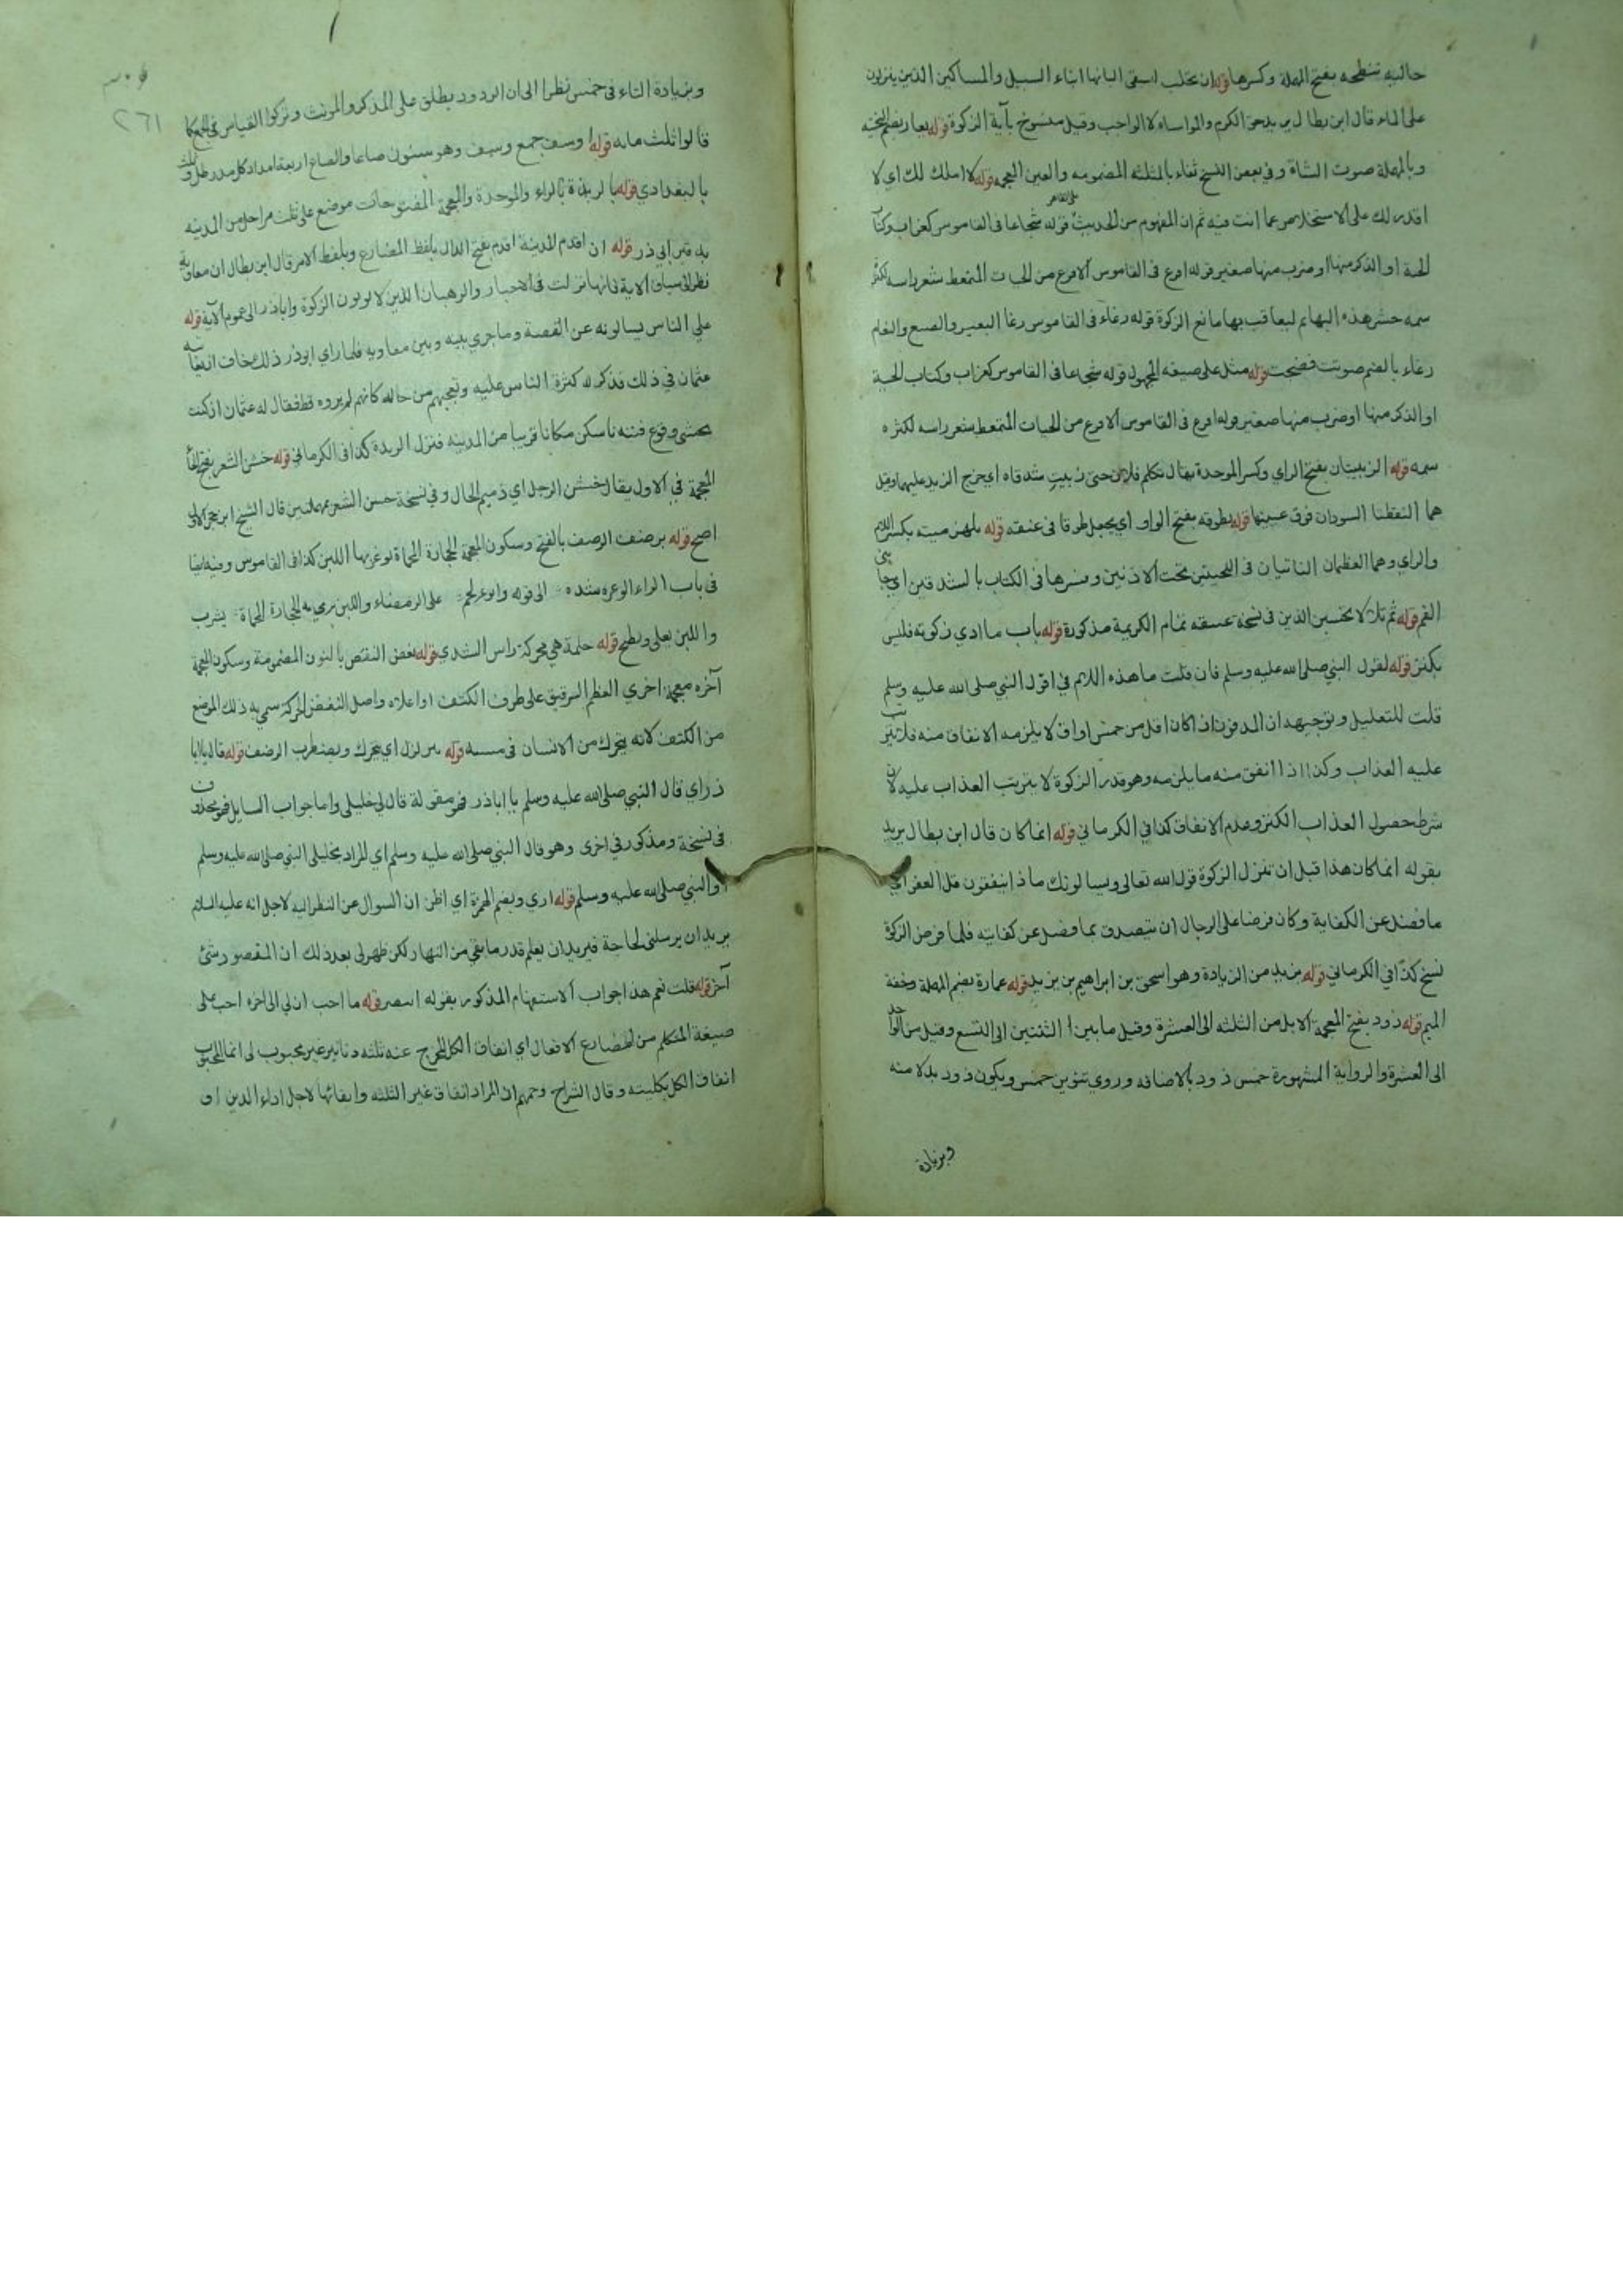 حالبه تنطحه بفتح المهملة وكسرها قوله ان تحلب ليسقى البانها ابناء السبيل والمساكين الذين ينزلون
على الماء قال ابن بطال يريد حق الكرم والمواساه لا الواجب وقيل منسوخ بآية الزكوة قوله يعار بضم التحتيه
وبالمهملة صوت الشاة وفي بعض النسخ ثغاء بالمثلثه المضمومه والغين المعجمه قوله لا املك لك اي لا
اقدر لك على الاستخلاص مما انت فيه ثم ان المفهوم من الحديث قوله شجاعا في القاموس كغراب وكتاب
الحية او الذكر منها او ضرب منها صغير قوله اقرع في القاموس الاقرع من الحيات المتمعط شعر راسه لكثرة
سمه حشر هذه البهايم ليعاقب بها مانع الزكوة قوله رغاء في القاموس رغا البعير والضبع والنعام
رغاء بالضم صوتت فضجت قوله مثل على صيغه المجهول قوله شجاعا في القاموس كغراب وكتاب الحية
او الذكر منها او ضرب منها صغير قوله اقرع في القاموس الاقرع من الحيات المتمعط شعر راسه لكثرة
سمه قوله الزبيبتان بفتح الزاي وكسر الموحدة يقال تكلم فلان حتى زبيت شدقاه اي خرج الزبد عليهما وقيل
هما النقطتا السودان فوق عينيها قوله يطوقه بفتح الواو اي يجعل طوقا في عنقه قوله بلهزميته بكسر اللام
والزاي وهما العظمان الناتيان في اللحيتين تحت الاذنين وفسرها في الكتاب بالشدقين اي جانبي
الفم قوله ثم تلا لا تحسبن الذين في نسخة عتيقه تمام الكريمة مذكورة قوله باب ما ادي زكوته فليس
بكنز قوله لقول النبي صلى الله عليه وسلم فان قلت ما هذه اللام في اقول النبي صلى الله عليه وسلم
قلت للتعليل وتوجيهه ان المدفون اذا كان اقل من خمس اواق لا يلزمه الانفاق منه فلا يترتب
عليه العذاب وكذا اذا انفق منه ما يلزمه وهو قدر الزكوة لا يترتب العذاب عليه لان
شرط حصول العذاب الكنز وعدم الانفاق كذا في الكرماني قوله انما كان قال ابن بطال يريد
بقوله انما كان هذا قبل ان تنزل الزكوة قول الله تعالى ويسالونك ماذا ينفقون قل العفو اي
ما فضل عن الكفاية وكان فرضا على الرجال ان يتصدق بما فضل عن كفايته فلما فرض الزكوة
نسخ كذا في الكرماني قوله يزيد من الزيادة وهو اسحق بن ابراهيم بن يزيد قوله عمارة بضم المهملة وخفة
الميم قوله ذود بفتح المعجمة الابل من الثلثه الى العشرة وقيل ما بين الثنتين الى التسع وقيل من الواحد
الى العشرة والرواية المشهورة خمس ذود بالاضافه وروي تنوين خمس ويكون ذود بدلا منه
وبزيادة
٢٦١
وبزيادة التاء في خمس نظرا الى ان الذود يطلق على المذكر والمونث وتركوا القياس في الجمع كما
قالوا ثلث مايه قوله اوسق جمع وسق وهو ستون صاعا والصاع اربعة امداد كل مد رطل وثلث
بالبغدادي قوله بالربذة بالراء والموحدة والمعجمة المفتوحات موضع على ثلث مراحل من المدينه
به قبر ابي ذر قوله ان اقدم المدينة اقدم بفتح الدال بلفظ المضارع وبلفظ الامر قال ابن بطال ان معاوية
نظر الى سياق الاية فانها نزلت في الاحبار والرهبان الذين لا يوتون الزكوة وابا ذر الى عموم الآية قوله
علي الناس يسالونه عن القصة وما جرى بينه وبين معاويه فلما راي ابوذر ذلك خاف
عثمان في ذلك فذكر له كثرة الناس عليه وتعجبهم من حاله كانهم لم يروه قط فقال له عثمان ان كنت
تخشى وقوع فتنه فاسكن مكانا قريبا من المدينه فنزل الربذة كذا في الكرماني قوله خشن الشعر بفتح الخاء
المعجمة في الاول يقال خشن الرجل اي ذميم الحال وفي نسخة حسن الشعر بمهملتين قال الشيخ ابن حجر الاولى
اصح قوله برضف الرضف بالفتح وسكون المعجمة الحجارة المحماة يوغر بها اللبن كذا في القاموس وفيه ايضا
في باب الراء الوغرة شدة الى قوله واللبن يرمى به الحجارة المحماة يشرب
واللبن يغلى ويطبخ قوله حلمة هي محركة راس الثدي قوله نغض النغض بالنون المضمومة وسكون المعجمة
آخره معجمة اخري العظم الرقيق على طرف الكتف او اعلاه واصل النغض الحركة سمي به ذلك الموضع
من الكتف لانه يتحرك من الانسان في مشيه قوله يتزلزل اي يتحرك ويضطرب الرضف قوله قال يا ابا
ذر اي قال النبي صلى الله عليه وسلم يا اباذر فهو مقولة قال لي خليلي واما جواب السايل فمحذوف
في نسخة ومذكور في اخرى وهو قال النبي صلى الله عليه وسلم اي المراد بخليلي النبي صلى الله عليه وسلم
او النبي صلى الله عليه وسلم قوله اري وبضم الهمزة اي اظن ان السوال عن النظر اليه لاجل انه عليه السلام
يريد ان يرسلني لحاجة فيريد ان يعلم قدر ما بقي من النهار لكن ظهر لي بعد ذلك ان المقصود شئ
آخر قوله قلت نعم هذا جواب الاستفهام المذكور بقوله اتبصر قوله ما احب ان لي الى اخره احب على
صيغة المتكلم من المضارع الافعال اي انفاق الكل المخرج عنه ثلثه دنانير غير محبوب لي انما المحبوب
انفاق الكل بكليته وقال الشراح وجمهم ان المراد انفاق غير الثلثه وابقائها لاجل اداء الدين او